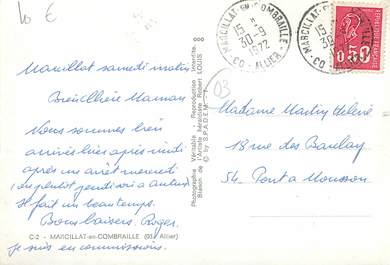 10 €
MARCILLAT-EN-COMBRAILLE
15 H
30-9
1972
CO - ALLIER
MARCILLAT-EN-COMBRAILLE
15 H
30-9
CO - ALLIER
0,50
03
Marcillat samedi matin
Bien Chère Maman
Nous sommes bien
arrivés hier après midi
après un arrêt mercredi
ou plutôt jeudi soir a
il fait un beau temps.
Bons baisers. Roger.
je suis en commissions.
C-2 - MARCILLAT-en-COMBRAILLE (03 Allier)
Photographie Véritable - Reproduction Interdite.
Blason de l'Artiste héraldiste Robert LOUIS
© by S.P.A.D.E.M.
Madame Martin Hélène
18 rue des
54. Pont a Mousson